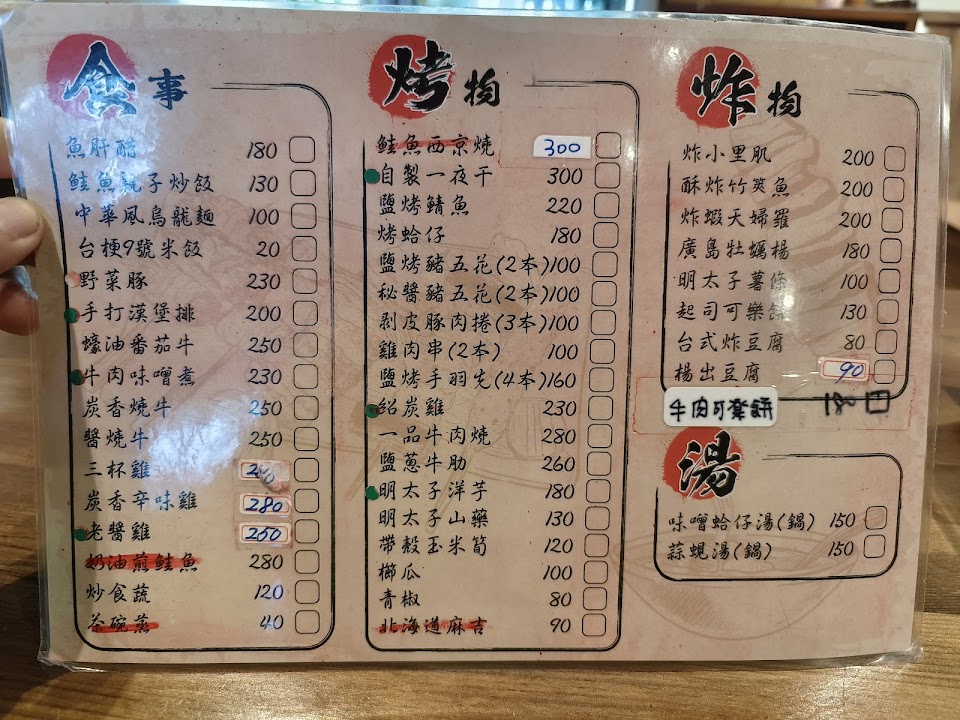 食事
魚肝醋 180
鮭魚親子炒飯 130
中華風烏龍麵 100
台梗9號米飯 20
野菜豚 230
手打漢堡排 200
蠔油番茄牛 250
牛肉味噌煮 230
炭香燒牛 250
醬燒牛 250
三杯雞
炭香辛味雞 280
老醬雞 250
奶油煎鮭魚 280
炒食蔬 120
茶碗蒸 40
烤物
鮭魚西京燒 300
自製一夜干 300
鹽烤鯖魚 220
烤蛤仔 180
鹽烤豬五花(2本) 100
秘醬豬五花(2本) 100
剥皮豚肉捲(3本) 100
雞肉串(2本) 100
鹽烤手羽先(4本) 160
紹炭雞 230
一品牛肉燒 280
鹽蔥牛肋 260
明太子洋芋 180
明太子山藥 130
帶殼玉米筍 120
櫛瓜 100
青椒 80
北海道麻吉 90
炸物
炸小里肌 200
酥炸竹筴魚 200
炸蝦天婦羅 200
廣島牡蠣楊 180
明太子薯條 100
起司可樂餅 130
台式炸豆腐 80
楊出豆腐 90
牛肉可樂餅 180
湯
味噌蛤仔湯(鍋) 150
蒜蜆湯(鍋) 150